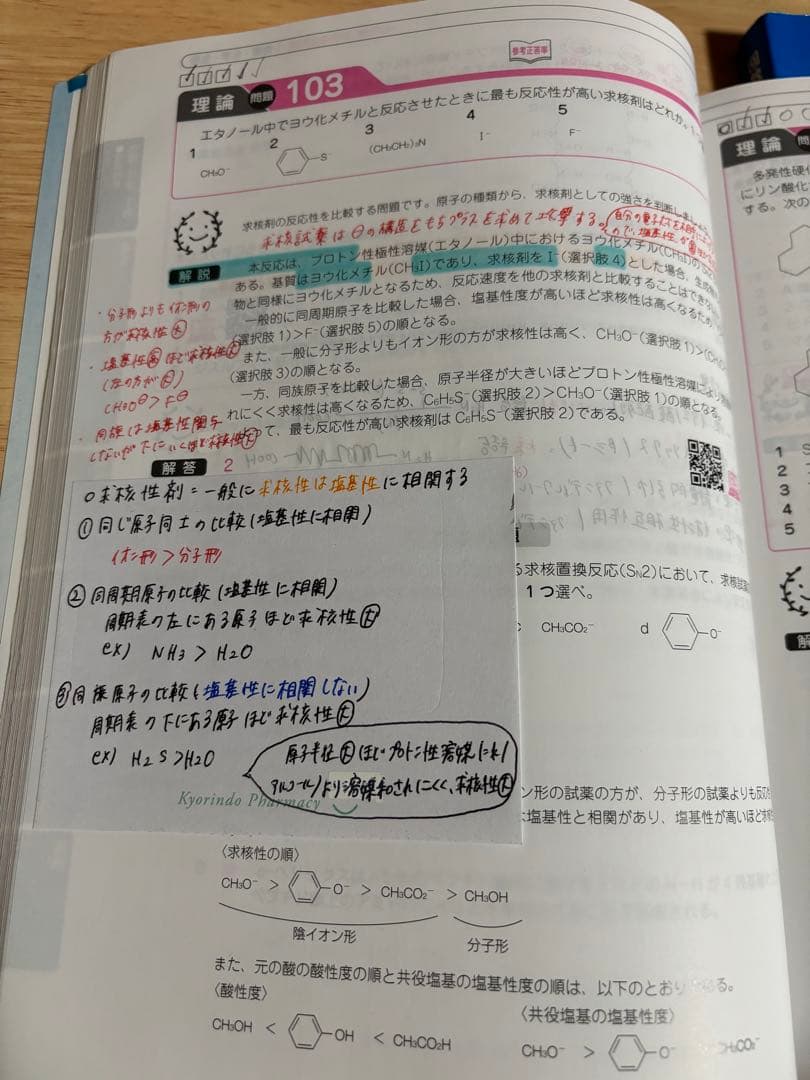 参考正答率
理論 問題 103
エタノール中でヨウ化メチルと反応させたときに最も反応性が高い求核剤はどれか。1
1 CH₃O⁻
2 S⁻
3 (CH₃CH₂)₃N
4 I⁻
5 F⁻
求核剤の反応性を比較する問題です。原子の種類から、求核剤としての強さを判断しま
求核試薬は⊖の構造をもちプラスを求めて攻撃する。
解説
本反応は、プロトン性極性溶媒(エタノール)中におけるヨウ化メチル(CH₃I)の
ある。基質はヨウ化メチル(CH₃I)であり、求核剤をI⁻(選択肢4)とした場合、生成
物と同様にヨウ化メチルとなるため、反応速度を他の求核剤と比較することはでき
一般的に同周期原子を比較した場合、塩基性度が高いほど求核性は高くなるため
(選択肢1)>F⁻(選択肢5)の順となる。
また、一般に分子形よりもイオン形の方が求核性は高く、CH₃O⁻(選択肢1)>
(選択肢3)の順となる。
一方、同族原子を比較した場合、原子半径が大きいほどプロトン性極性溶媒により
れにくく求核性は高くなるため、C₆H₅S⁻(選択肢2)>CH₃O⁻(選択肢1)の順となる。
て、最も反応性が高い求核剤はC₆H₅S⁻(選択肢2)である。
・分子形よりもイオン形の
方が求核性㊛大
・塩基性高ほど求核性大
(左の方が大)
CH₃O⊖ > F⊖
・同族は塩基性関与
しないが下にいくほど求核性大
解答 2
○求核性剤=一般に求核性は塩基性に相関する
①同じ原子同士の比較(塩基性に相関)
イオン形>分子形
②同周期原子の比較(塩基性に相関)
周期表の左にある原子ほど求核性大
ex) NH₃ > H₂O
③同族原子の比較(塩基性に相関しない)
周期表の下にある原子ほど求核性大
ex) H₂S>H₂O
原子半径大ほどプロトン性溶媒(
アルコール)より溶媒和されにくく、求核性大
Kyorindo Pharmacy
る求核置換反応(SN2)において、求核試
1つ選べ。
CH₃CO₂⁻ d O⁻
ン形の試薬の方が、分子形の試薬よりも反
は塩基性と相関があり、塩基性が高いほど求核
〈求核性の順〉
CH₃O⁻ > O⁻ > CH₃CO₂⁻ > CH₃OH
陰イオン形 分子形
また、元の酸の酸性度の順と共役塩基の塩基性度の順は、以下のとおりる。
〈酸性度〉 〈共役塩基の塩基性度〉
CH₃OH < OH < CH₃CO₂H
CH₃O⁻ > O⁻ CH₃CO₂⁻
理論 問
多発性硬化
にリン酸化
する。次の
1
2
3
4
5
解